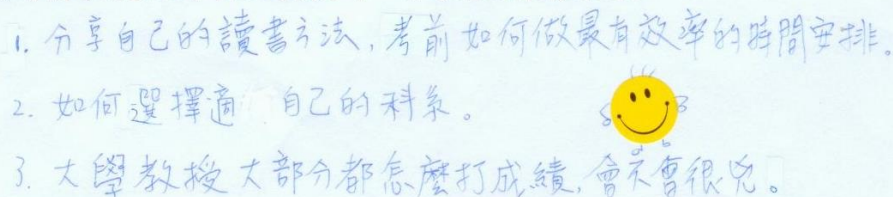 1. 分享自己的讀書方法,考前如何做最有效率的時間安排。
2. 如何選擇適 自己的科系。
3. 大學教授大部分都怎麼打成績,會不會很兇。